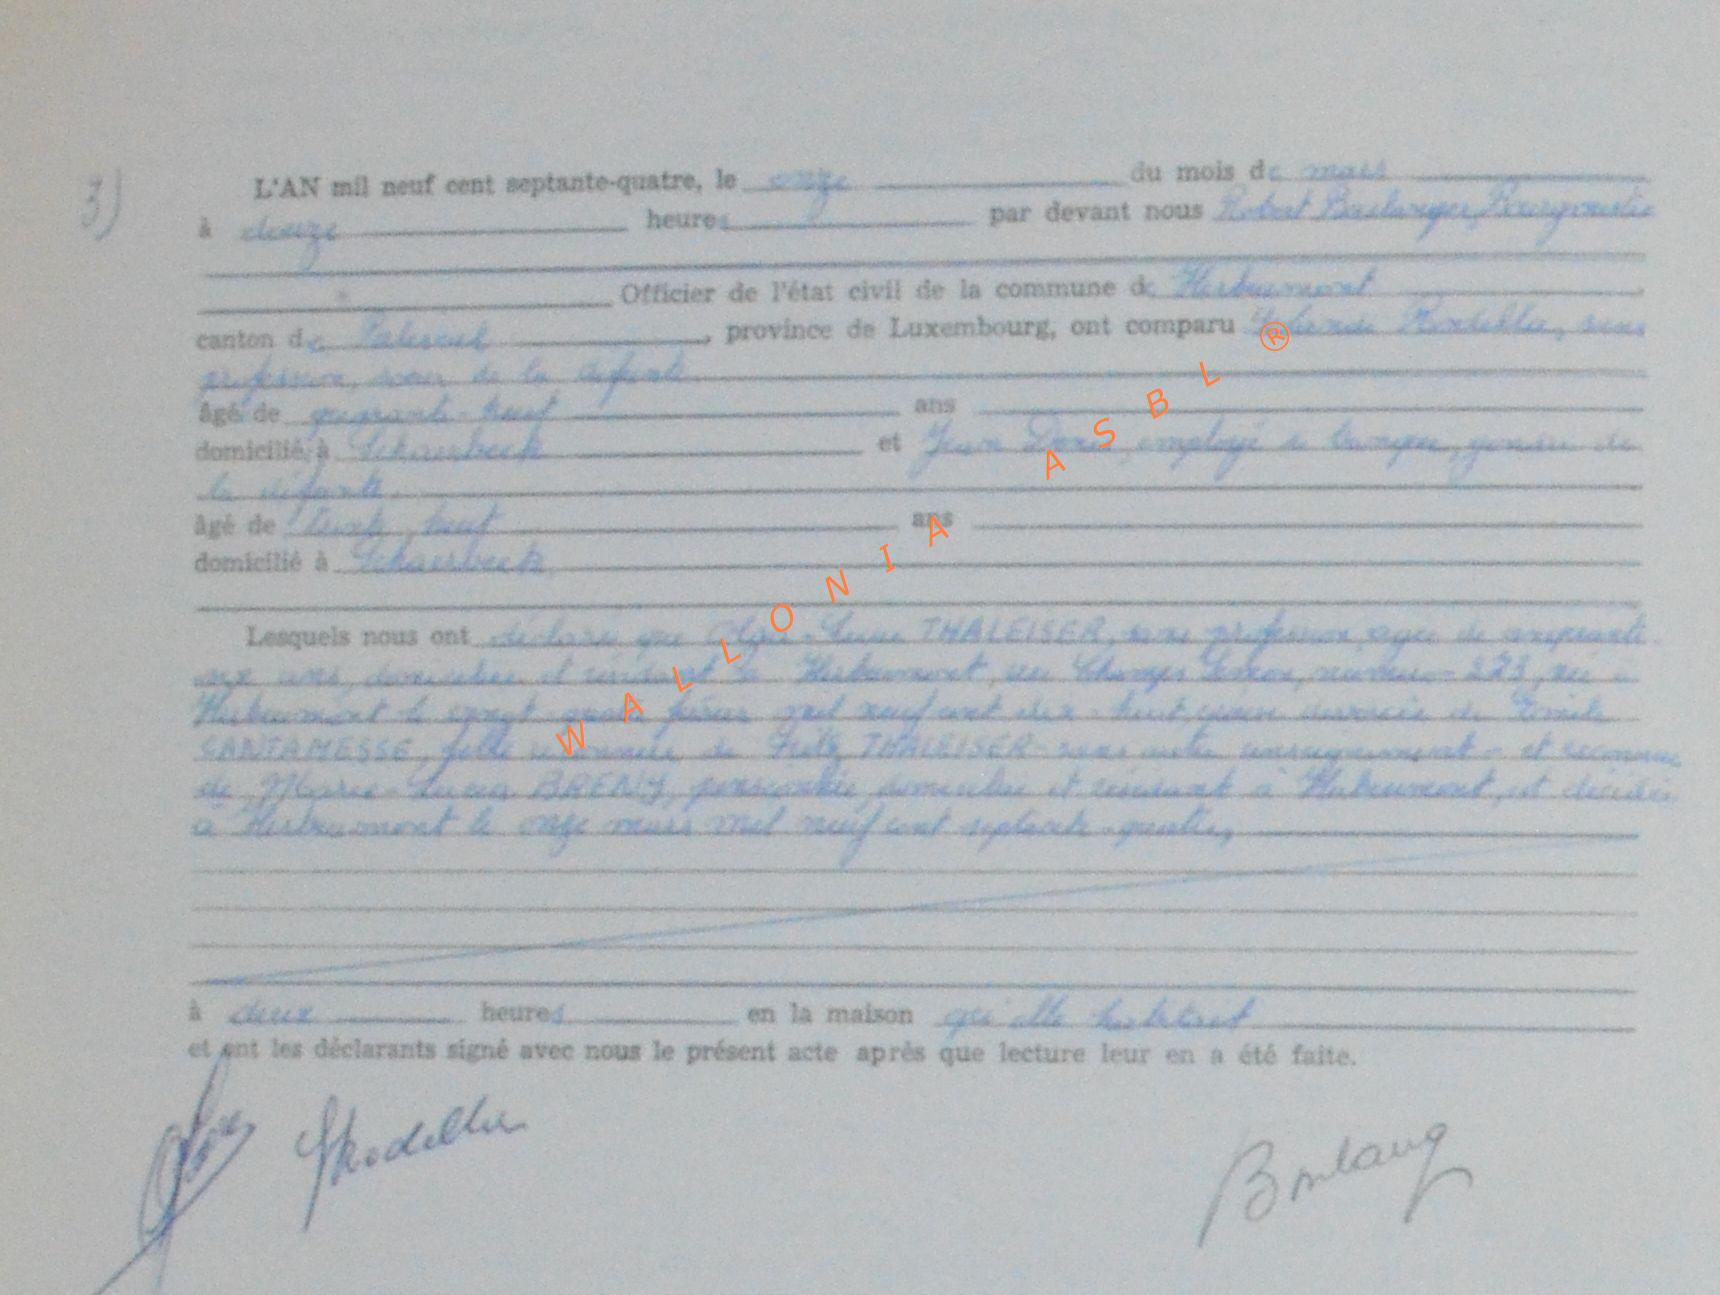 3)
L'AN mil neuf cent septante-quatre, le onze du mois de mars
à douze heures par devant nous Robert Boulanger, Bourgmestre
Officier de l'état civil de la commune de Herbeumont
canton de Paliseul, province de Luxembourg, ont comparu sans
profession, soeur de la défunte
âgé de quarante-huit ans
domicilié à Schaerbeek et Jean employé de banque, gendre de
la défunte
âgé de trente-huit ans
domicilié à Schaerbeek
Lesquels nous ont déclaré que THALEISER, sans profession, agée de cinquante
ans, domiciliée et résidant à Herbeumont, numéro 223, née à
Herbeumont le vingt février mil neuf cent dix-huit, divorcée de Emile
SANTAMESSE, fille de Fritz THALEISER - sans autre renseignement - et reconnue
de Marie BRENY, pensionnée, domiciliée et résidant à Herbeumont, est décédée
à Herbeumont le onze mars mil neuf cent septante-quatre,
à deux heures en la maison qu'elle habitait
et ont les déclarants signé avec nous le présent acte après que lecture leur en a été faite.
Boulang
WALLONIA ASBL ®